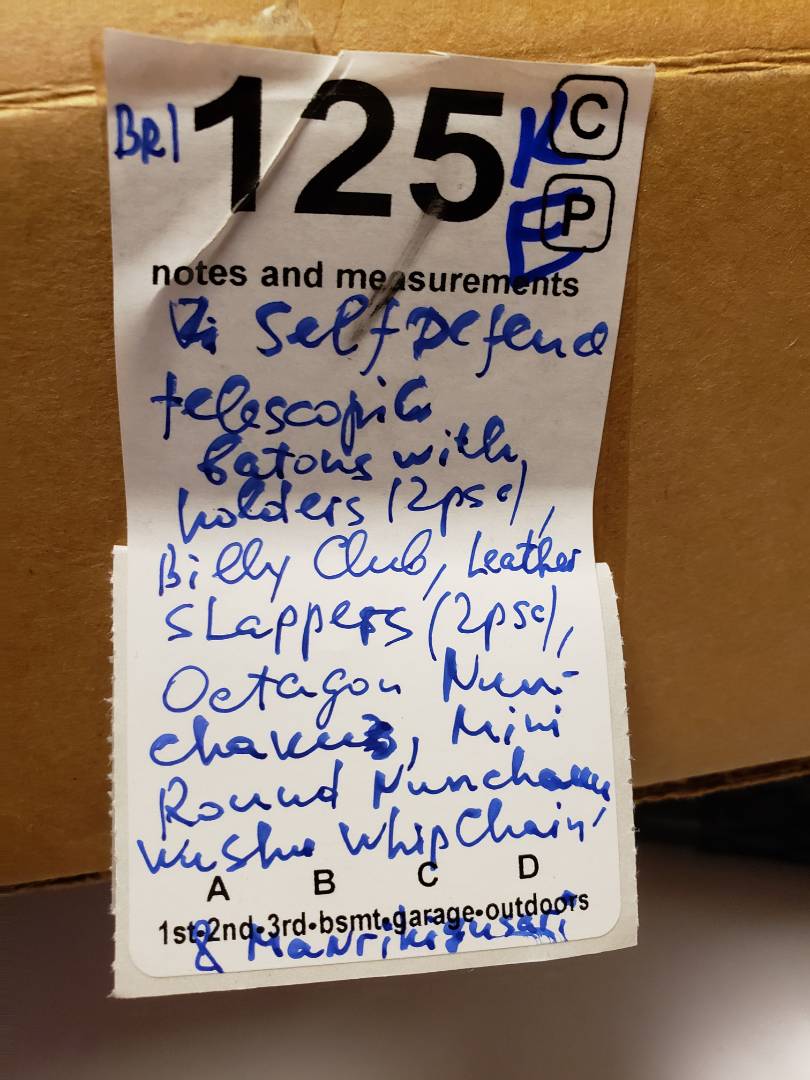 BR1 125 K C
E P
notes and measurements
Self Defend
telescopic
batons with
holders (2psc),
Billy Club, Leather
Slappers (2psc),
Octagon Nun-
chakus, Mini
Round Nunchaku
Wushu Whip Chain
A B C D
1st•2nd•3rd•bsmt•garage•outdoors
& Manrikigusari